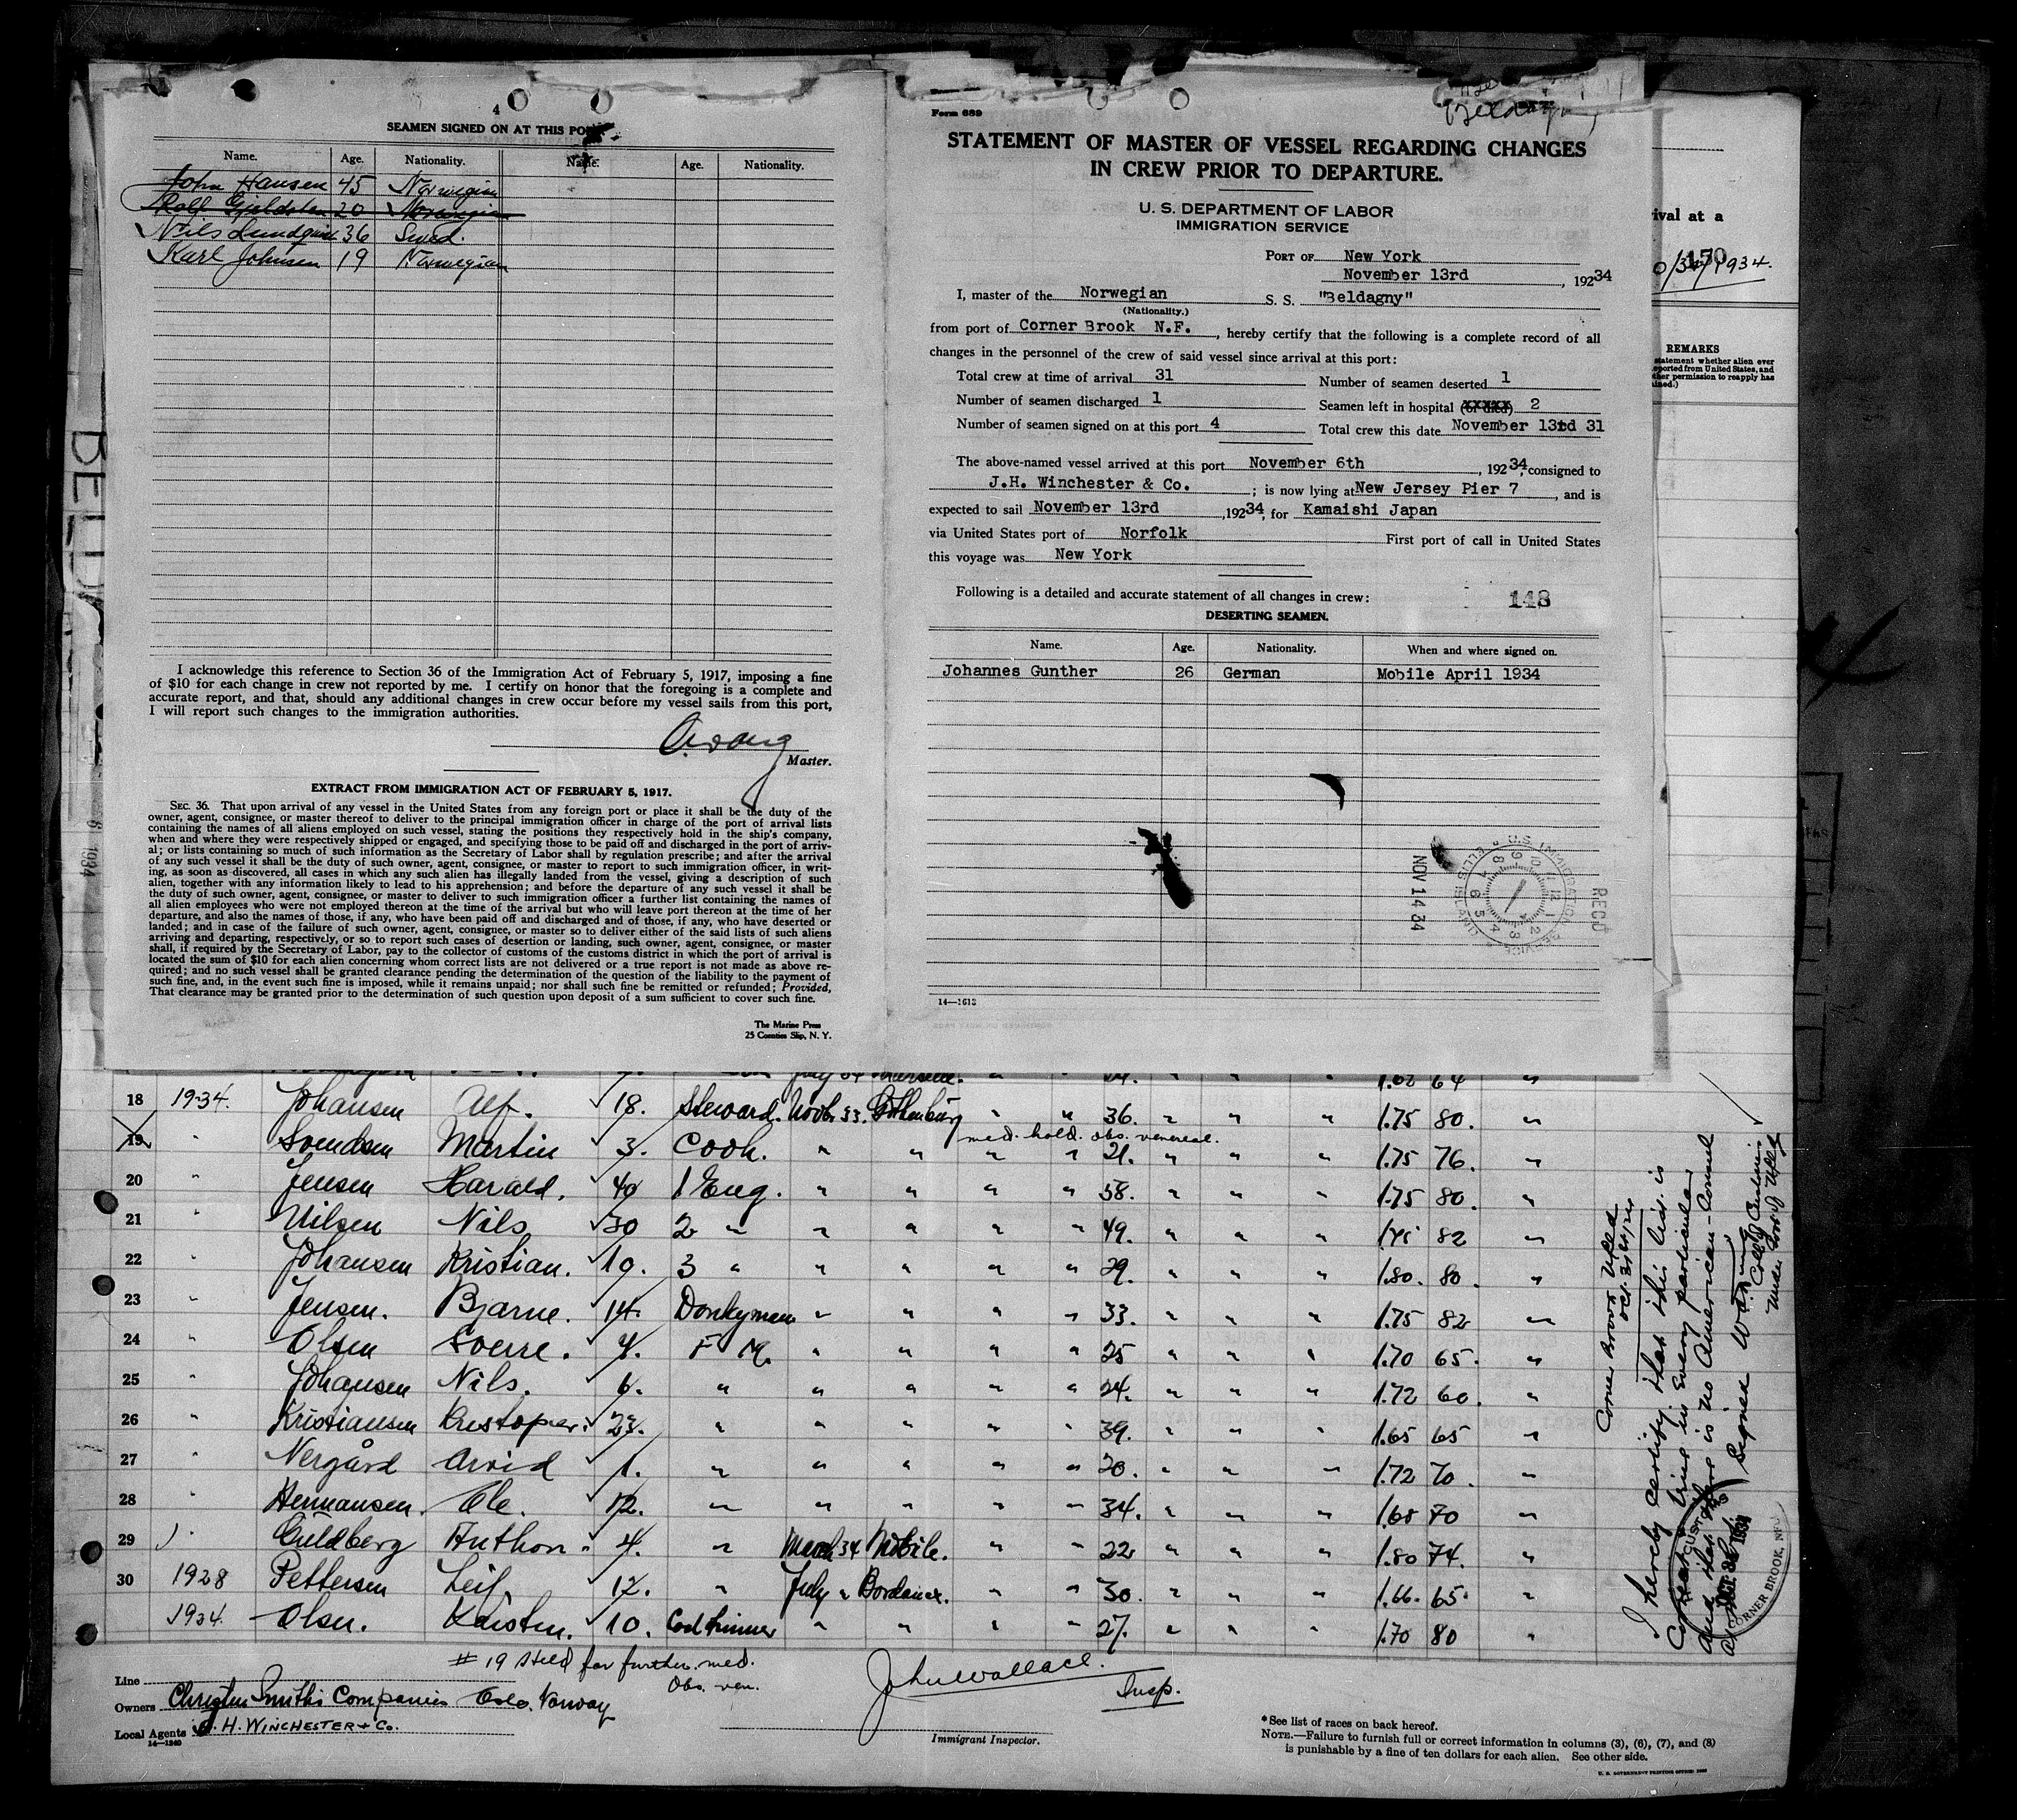 4
SEAMEN SIGNED ON AT THIS PORT
Name. Age. Nationality. Name. Age. Nationality.
John Hansen 45 Norwegian
Rolf Gjeldsten 20 Norwegian
Nils Lundquist 36 Swed.
Karl Johnsen 19 Norwegian
I acknowledge this reference to Section 36 of the Immigration Act of February 5, 1917, imposing a fine
of $10 for each change in crew not reported by me. I certify on honor that the foregoing is a complete and
accurate report, and that, should any additional changes in crew occur before my vessel sails from this port,
I will report such changes to the immigration authorities.
Master.
EXTRACT FROM IMMIGRATION ACT OF FEBRUARY 5, 1917.
SEC. 36. That upon arrival of any vessel in the United States from any foreign port or place it shall be the duty of the
owner, agent, consignee, or master thereof to deliver to the principal immigration officer in charge of the port of arrival lists
containing the names of all aliens employed on such vessel, stating the positions they respectively hold in the ship's company,
when and where they were respectively shipped or engaged, and specifying those to be paid off and discharged in the port of arriv-
al; or lists containing so much of such information as the Secretary of Labor shall by regulation prescribe; and after the arrival
of any such vessel it shall be the duty of such owner, agent, consignee, or master to report to such immigration officer, in writ-
ing, as soon as discovered, all cases in which any such alien has illegally landed from the vessel, giving a description of such
alien, together with any information likely to lead to his apprehension; and before the departure of any such vessel it shall be
the duty of such owner, agent, consignee, or master to deliver to such immigration officer a further list containing the names of
all alien employees who were not employed thereon at the time of the arrival but who will leave port thereon at the time of her
departure, and also the names of those, if any, who have been paid off and discharged and of those, if any, who have deserted or
landed; and in case of the failure of such owner, agent, consignee, or master so to deliver either of the said lists of such aliens
arriving and departing, respectively, or so to report such cases of desertion or landing, such owner, agent, consignee, or master
shall, if required by the Secretary of Labor, pay to the collector of customs of the customs district in which the port of arrival is
located the sum of $10 for each alien concerning whom correct lists are not delivered or a true report is not made as above re-
quired; and no such vessel shall be granted clearance pending the determination of the question of the liability to the payment of
such fine, and, in the event such fine is imposed, while it remains unpaid; nor shall such fine be remitted or refunded; Provided,
That clearance may be granted prior to the determination of such question upon deposit of a sum sufficient to cover such fine.
The Marine Press
25 Coenties Slip, N. Y.
Form 689
Beldagny
STATEMENT OF MASTER OF VESSEL REGARDING CHANGES
IN CREW PRIOR TO DEPARTURE.
U. S. DEPARTMENT OF LABOR
IMMIGRATION SERVICE
PORT OF New York
November 13rd, 19234
I, master of the Norwegian S. S. "Beldagny"
(Nationality.)
from port of Corner Brook N.F., hereby certify that the following is a complete record of all
changes in the personnel of the crew of said vessel since arrival at this port:
Total crew at time of arrival 31 Number of seamen deserted 1
Number of seamen discharged 1 Seamen left in hospital (or died) 2
Number of seamen signed on at this port 4 Total crew this date November 13rd 31
The above-named vessel arrived at this port November 6th, 19234, consigned to
J.H. Winchester & Co.; is now lying at New Jersey Pier 7, and is
expected to sail November 13rd, 19234, for Kamaishi Japan
via United States port of Norfolk First port of call in United States
this voyage was New York
Following is a detailed and accurate statement of all changes in crew: 148
DESERTING SEAMEN.
Name. Age. Nationality. When and where signed on.
Johannes Gunther 26 German Mobile April 1934
NOV 14 34
U.S. IMMIGRATION SERVICE ELLIS ISLAND
REC'D
14—1613
ival at a
150
0/30/1934.
REMARKS
statement whether alien ever
eported from United States, and
her permission to reapply has
ined.)
BELD
6 1934
July 34 Marseille. " " 24. " " " 1.62 64 "
18 1934. Johansen Alf. 18. Steward. Novb. 33. Gothenburg " " 36. " " " 1.75 80. "
med. hold. obs. venereal.
19 " Svendsen Martin 3. Cook. " " " " 21. " " " 1.75 76. "
20 " Jensen Harald. 40 1 Eng. " " " " 58. " " " 1.75 80. "
21 " Nilsen Nils 30 2 " " " " " 49. " " " 82 "
22 " Johansen Kristian. 10. 3 " " " " " 29. " " " 1.80. 80. "
23 " Jensen. Bjarne. 14. Donkyman " " " " 33. " " " 1.75 82 "
24 " Olsen Sverre. 4. F M. " " " " 25 " " " 1.70 65. "
25 " Johansen Nils. 6. " " " " " 24. " " " 1.72 60. "
26 " Kristiansen Kristopher. 23. " " " " " 39. " " " 1.65 65 "
27 " Nergård Arvid 1. " " " " " 20. " " " 1.72 70. "
28 " Hermansen. Ole. 12. " " " " " 34. " " " 1.68 70 "
29 " Guldberg Anthon. 4. " March 34 Mobile. " " 22 " " " 1.80 74. "
30 1928 Pettersen Leif. 12. " July " Bordeaux. " " 30. " " " 1.66. 65. "
1934. Olsen. Karsten. 10. Coal trimmer " " " " 27. " " " 1.70 80 "
# 19 Held for further med.
Obs. ven.
Line
Owners Christen Smiths Companies Oslo. Norway
Local Agents J. H. WINCHESTER & Co.
14—1240
John Wallace.
Insp.
Immigrant Inspector.
*See list of races on back hereof.
NOTE.—Failure to furnish full or correct information in columns (3), (6), (7), and (8)
is punishable by a fine of ten dollars for each alien. See other side.
U. S. GOVERNMENT PRINTING OFFICE
Corner Brook Nfld
Oct. 31st, 1934
I hereby certify that this list is
correct & true in every particular
and that there is no American Consul
at Corner Brook.
Signed
CUSTOMS
CORNER BROOK, NFD